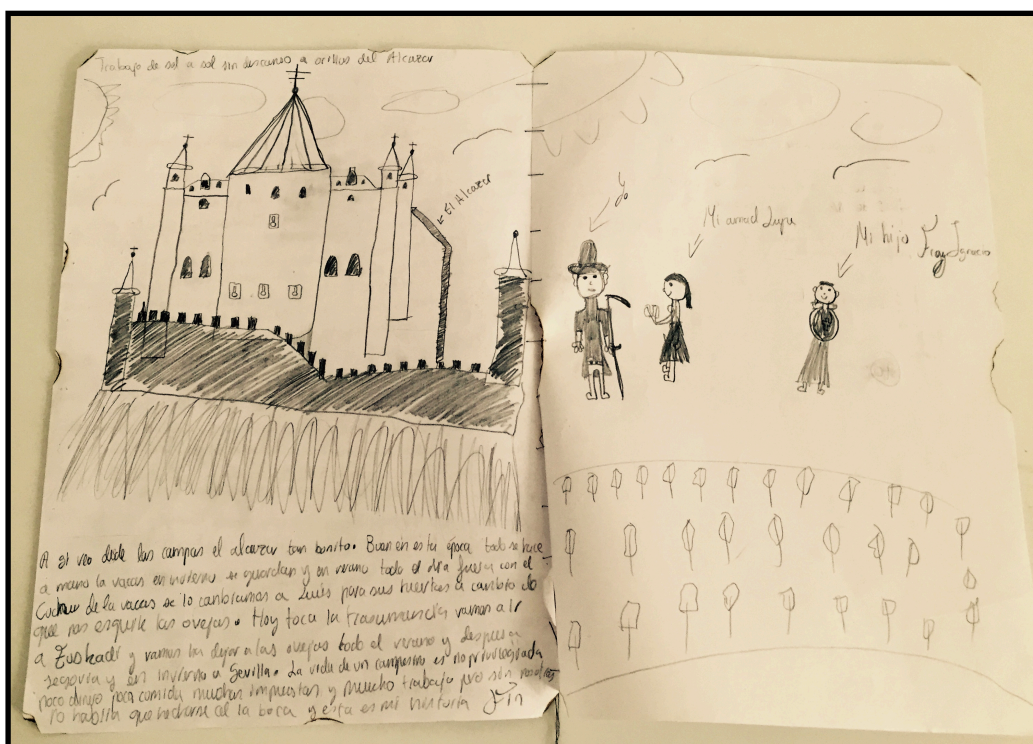 Trabajo de sol a sol sin descanso a orillas del Alcazar
El Alcazar
Yo
Mi amad Lupe
Mi hijo Fray Ignacio
A si veo desde los campos el alcazar tan bonito. Buen en esta época todo se hace
a mano la vacas en invierno se guardan y en verano todo el dia fuera con el
de la vacas se lo cambiamos a Luis para sus huertas a cambio de
que nos esquile las ovejas. Hoy toca la trasumancia vamos a ir
a Euskadi y vamos ha dejar a las ovejas todo el verano y despues a
segovia y en invierno a Sevilla. La vida de un campesino es no privilegiada
poco dinero poca comida muchos impuestos y mucho trabajo pro son
la boca y esta es mi historia Fin